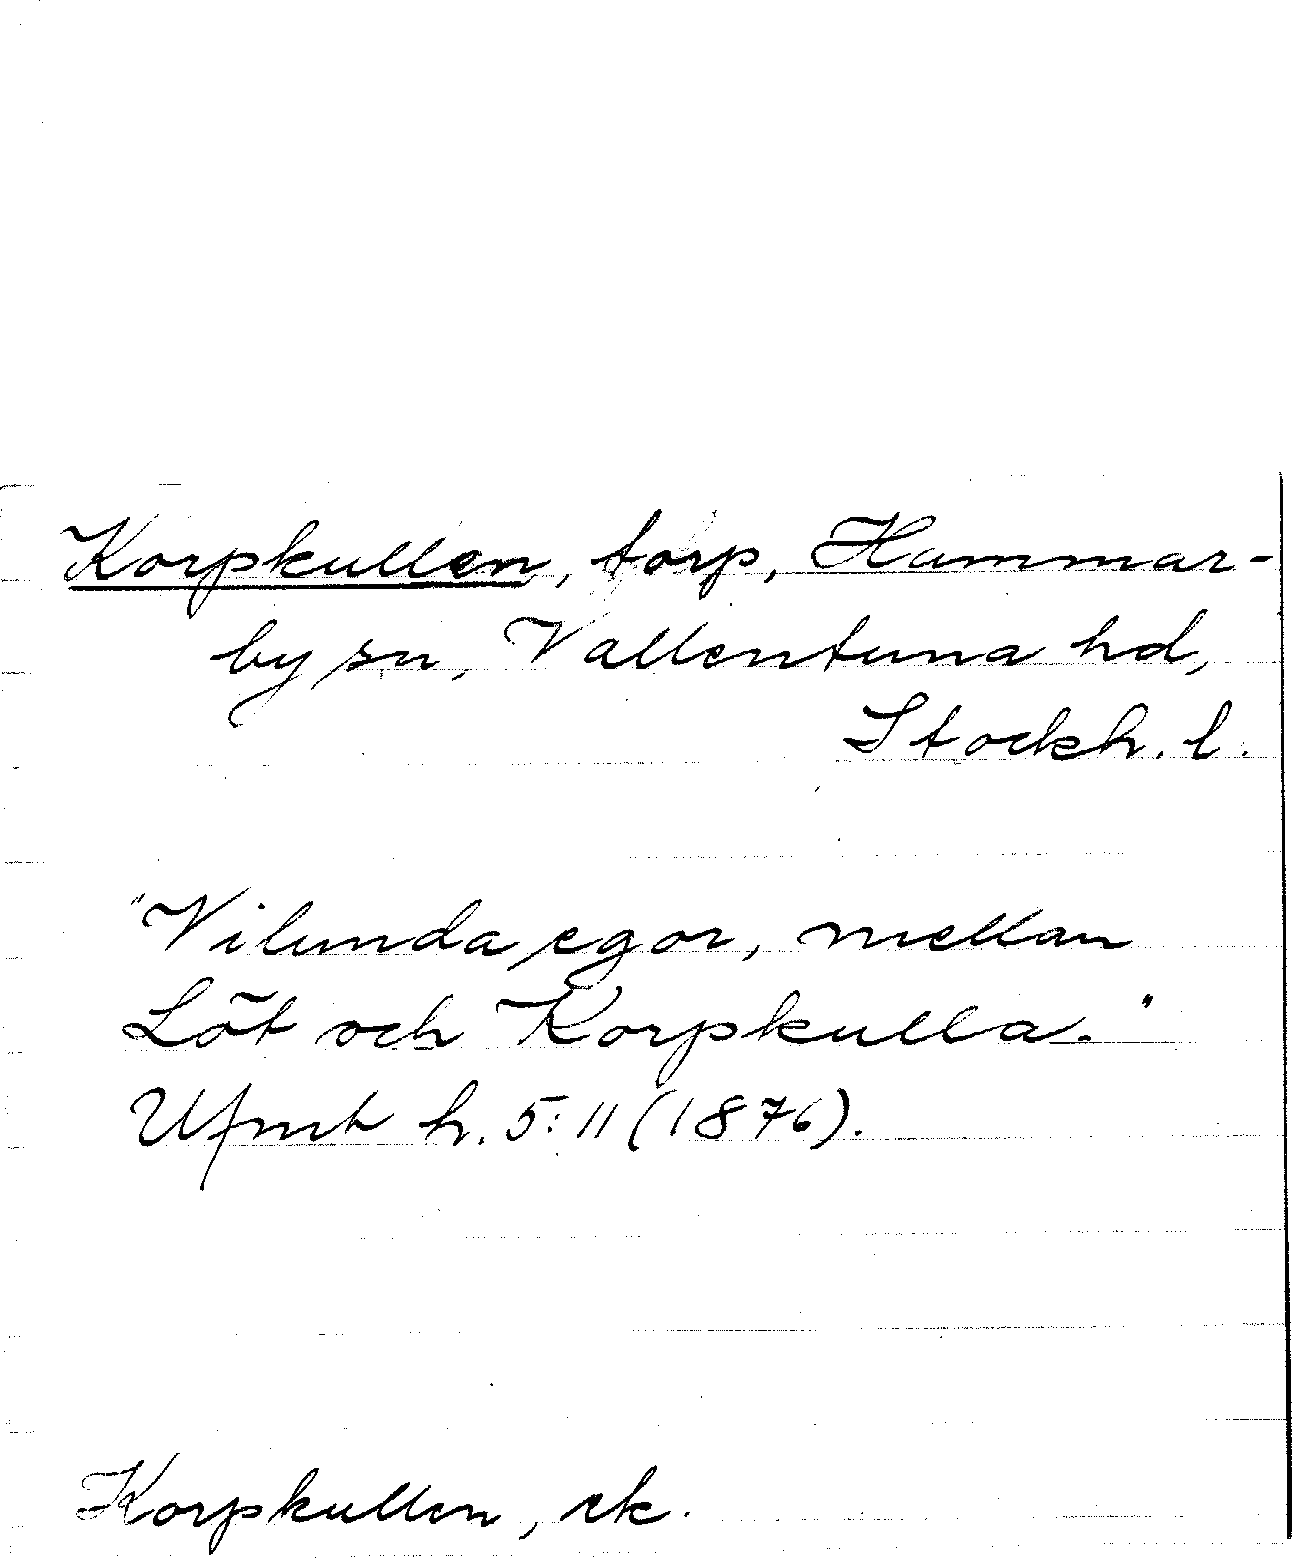 Korpkullen, torp, Hammar-
by sn, Vallentuna hd,
Stockh. l.
"Vilunda egor, mellan
Löt och Korpkulla."
Ufmt h. 5:11 (1876).
Korpkullen, ek.